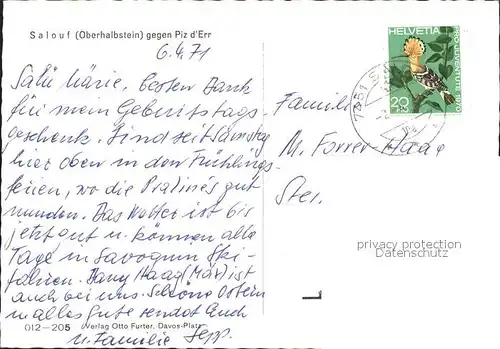 Salouf (Oberhalbstein) gegen Piz d'Err
6.4.71
Salü Märie, besten Dank
für mein Geburtstags-
geschenk. Sind seit Samstag
hier oben in den Frühlings-
ferien, wo die Pralinés gut
munden. Das Wetter ist bis
jetzt gut u. können alle
Tage in Savognin Ski-
fahren. Hany Haag (Mär) ist
auch bei uns. Schöne Ostern
u. alles gute sendet Euch
u. Familie Sepp.
012-205 Verlag Otto Furter, Davos-Platz
HELVETIA
PRO JUVENTUTE 1970
20
7451
Familie
M. Forrer-Haag
privacy protection
Datenschutz